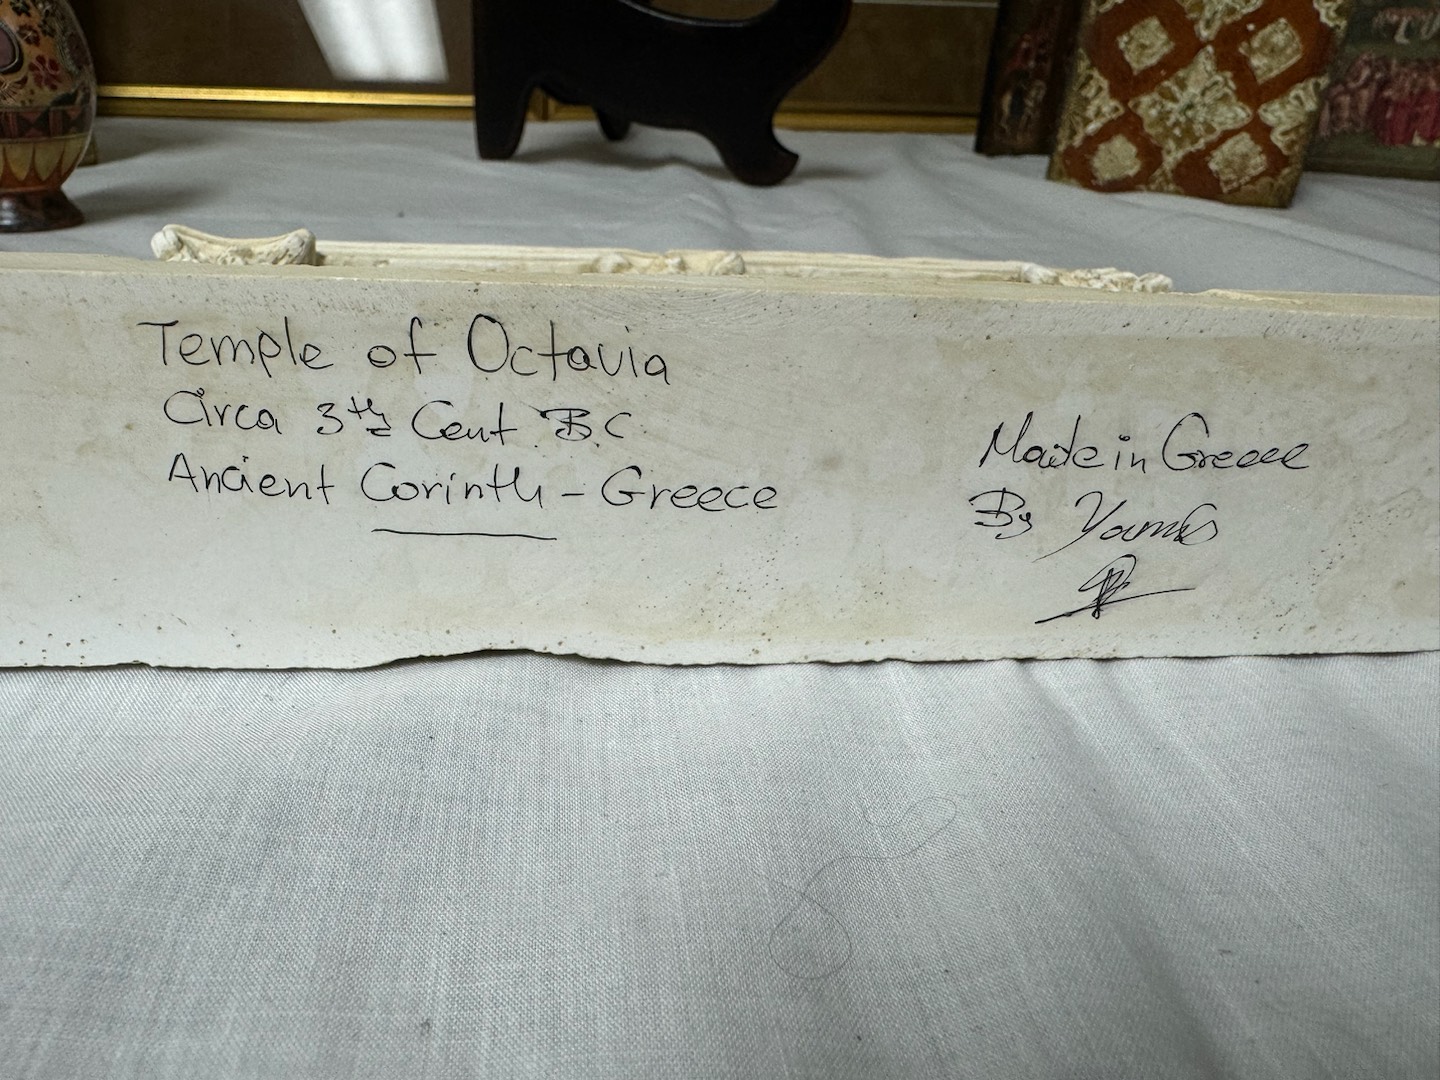 Temple of Octavia
Circa 3th Cent B.C.
Ancient Corinth - Greece
Made in Greece
By